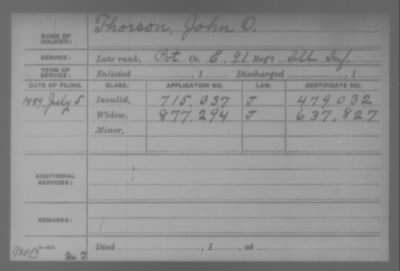 NAME OF SOLDIER: Thorson, John O.
SERVICE: Late rank, Pvt Co. E, 91 Reg't Ill Inf.
TERM OF SERVICE: Enlisted , 1 Discharged , 1
DATE OF FILING. CLASS. APPLICATION NO. LAW. CERTIFICATE NO.
1889, July 5 Invalid, 715,037 J 479032
Widow, 877,294 J 637,827
Minor,
ADDITIONAL SERVICES:
REMARKS:
Died , 1 , at